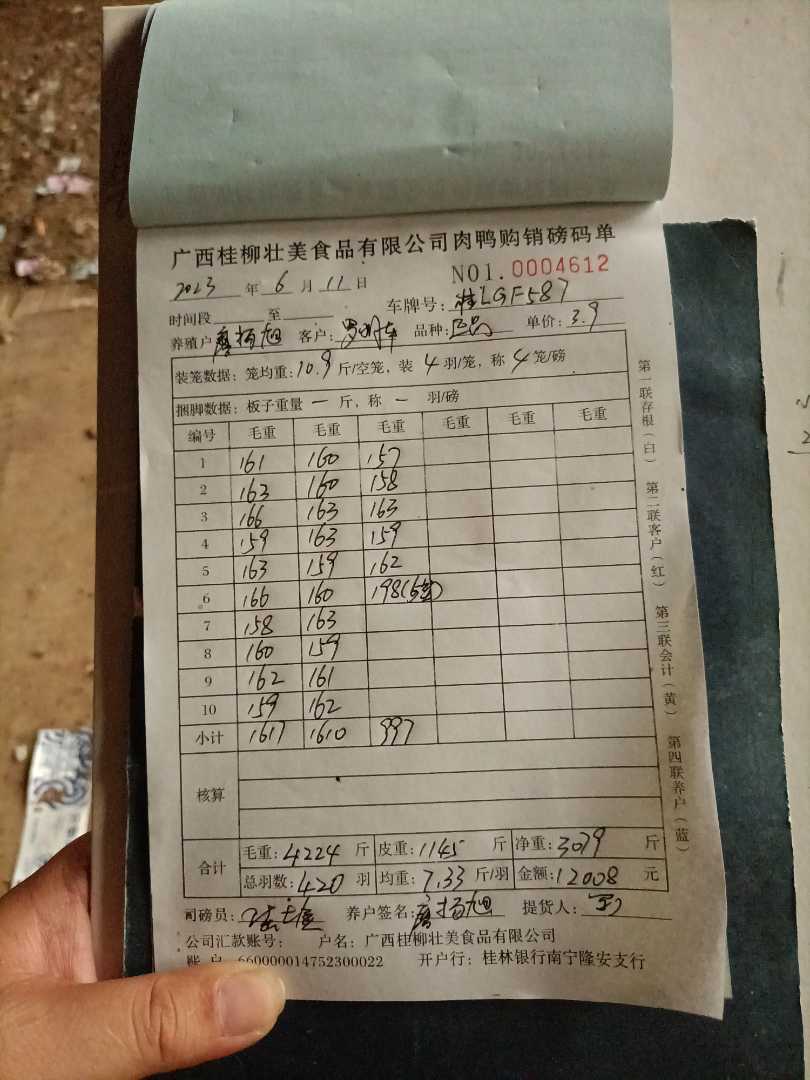 广西桂柳壮美食品有限公司肉鸭购销磅码单
2023 年 6 月 11 日 NO1.0004612
时间段 至 车牌号: 桂LGF587
养殖户 廖扬旭 客户: 品种: 正品 单价: 3.9
装笼数据: 笼均重: 10.9 斤/空笼, 装 4 羽/笼, 称 4 笼/磅
捆脚数据: 板子重量 一 斤, 称 一 羽/磅
编号 毛重 毛重 毛重 毛重 毛重 毛重
1 161 160 157
2 163 160 158
3 166 163 163
4 159 163 159
5 163 159 162
6 166 160 198(5笼)
7 158 163
8 160 159
9 162 161
10 159 162
小计 1617 1610 997
核算
合计 毛重: 4224 斤 皮重: 1145 斤 净重: 3079 斤
总羽数: 420 羽 均重: 7.33 斤/羽 金额: 12008 元
司磅员: 养户签名: 廖扬旭 提货人:
公司汇款账号: 户名: 广西桂柳壮美食品有限公司
账 户 660000014752300022 开户行: 桂林银行南宁隆安支行
第一联存根(白) 第二联客户(红) 第三联会计(黄) 第四联养户(蓝)